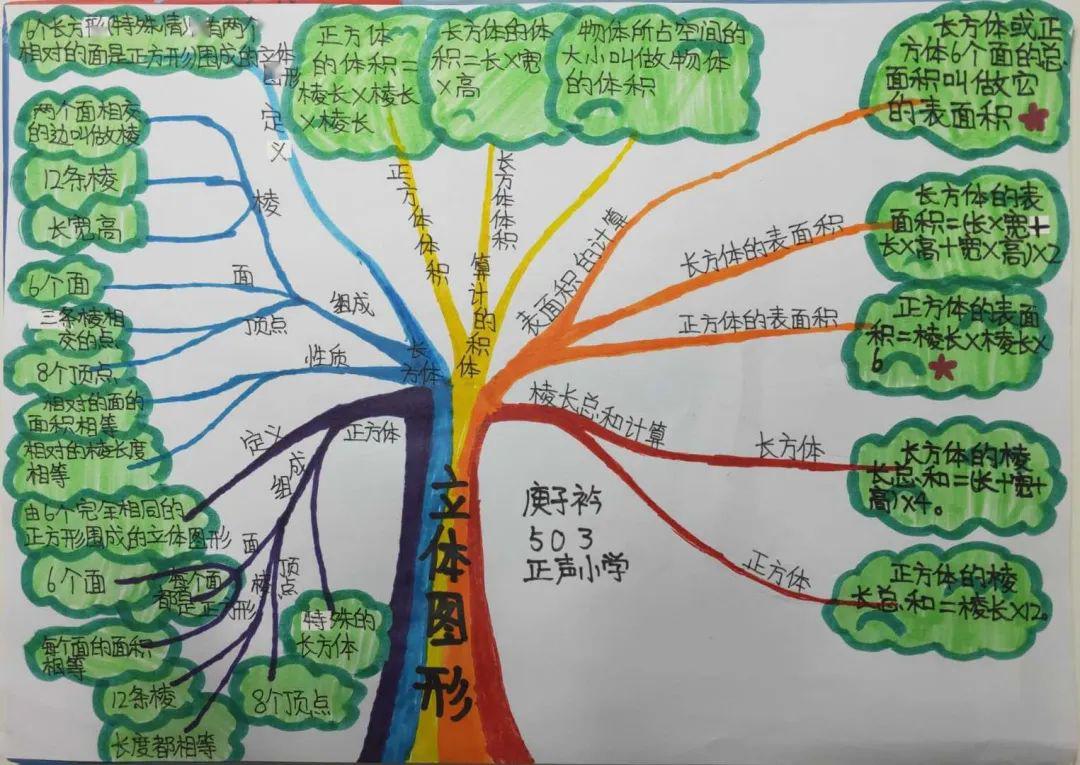 6个长方形(特殊情)有两个
相对的面是正方形围成的立体
图形
定义
正方体
的体积=
棱长×棱长
×棱长
长方体的体
积=长×宽
×高
物体所占空间的
大小叫做物体
的体积
长方体或正
方体6个面的总
面积叫做它
的表面积
两个面相交
的边叫做棱
12条棱
长宽高
棱
6个面
面
三条棱相
交的点
8个顶点
顶点
组成
相对的面的
面积相等
相对的棱长度
相等
性质
长方体
正方体体积
长方体体积
体积的计算
表面积的计算
长方体的表面积
长方体的表
面积=(长×宽+
长×高+宽×高)×2
正方体的表面积
正方体的表面
积=棱长×棱长×
6
棱长总和计算
长方体
长方体的棱
长总和=(长+宽+
高)×4。
正方体
正方体的棱
长总和=棱长×12。
正方体
定义
由6个完全相同的
正方形围成的立体图形
组成
面
6个面
每个面
都是正方形
每个面的面积
相等
棱
12条棱
长度都相等
顶点
8个顶点
特殊的
长方体
立体图形
庚子衿
503
正声小学